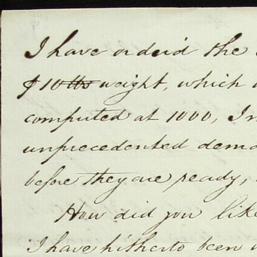 I have orderd the
$ 10 lbs weight, which
computed at 1000, I
unprecedented dema
before they are ready,
How did you like
I have hitherto been